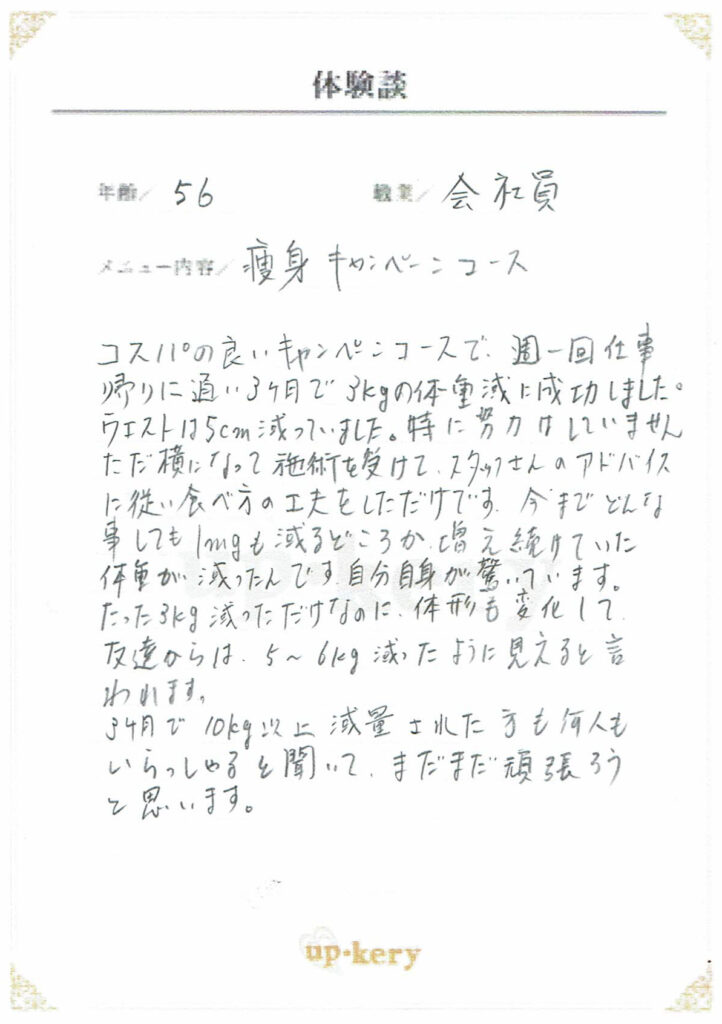 体験談
年齢/ 56 職業/ 会社員
メニュー内容/ 痩身キャンペーンコース
コスパの良いキャンペンコースで、週一回仕事
帰りに通い3ヶ月で3kgの体重減に成功しました。
ウエストは5cm減っていました。特に努力はしていません
ただ横になって施術を受けて、スタッフさんのアドバイス
に従い食べ方の工夫をしただけです。今までどんな
事しても1mgも減るどころか、増え続けていた
体重が減ったんです。自分自身が驚いています。
たった3kg減っただけなのに、体形も変化して、
友達からは、5～6kg減ったように見えると言
われます。
3ヶ月で10kg以上減量された方も何人も
いらっしゃると聞いて、まだまだ頑張ろう
と思います。
up・kery